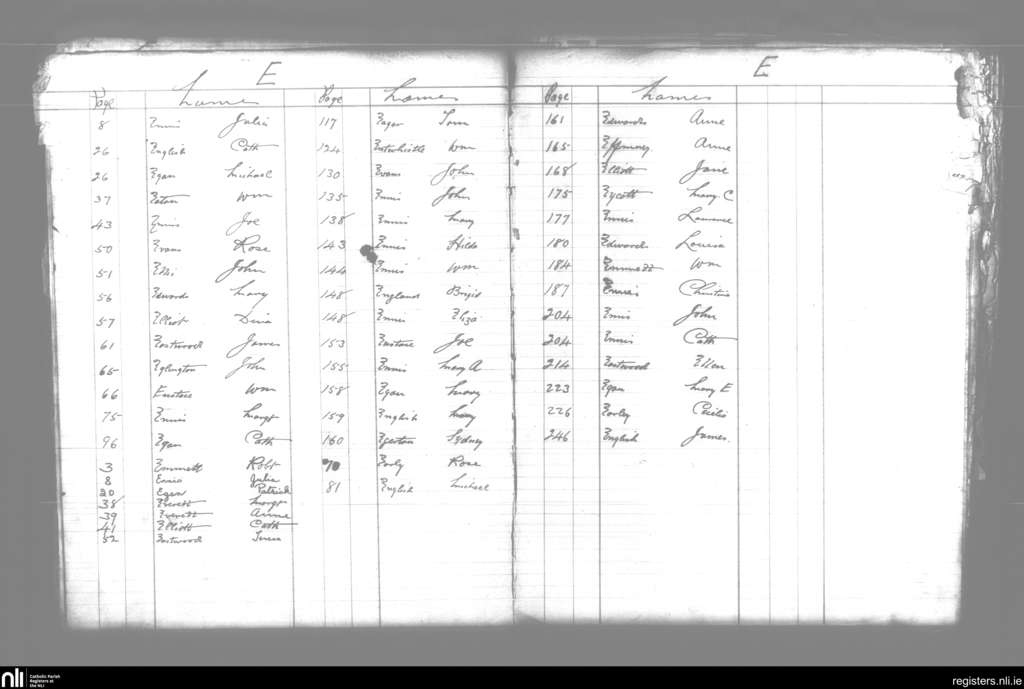 E
Page Names Page Names
8 Ennis Julia
26 English Cath
26 Egan Michael
37 Eaton Wm
43 Ennis Joe
50 Evans Rose
51 Ellis John
56 Edwards Mary
57 Elliot Dina
61 Eastwood James
65 Eglington John
66 Eustace Wm
75 Ennis Margt
96 Egan Cath
3 Emmett Robt
8 Ennis Julia
20 Egan Patrick
38 Everett Margt
39 Everett Anne
41 Elliott Cath
52 Eastwood Teresa
117 Eager Tom
124 Entwhistle Wm
130 Evans John
135 Ennis John
138 Ennis Mary
143 Ennis Hilda
144 Ennis Wm
148 England Brigid
148 Ennis Eliza
153 Eustace Joe
155 Ennis Mary A
158 Egan Mary
159 English Mary
160 Egerton Sydney
70 Early Rose
81 English Michael
E
Page Names
161 Edwards Anne
165 Anne
168 Elliott Jane
175 Eycott Mary C
177 Ennis Lawrence
180 Edwards Louisa
184 Emmett Wm
187 Ennis Christina
204 Ennis John
204 Ennis Cath
214 Eastwood Ellen
223 Egan Mary E
226 Early Cecilia
246 English James
nli
Catholic Parish
Registers at
the NLI
registers.nli.ie